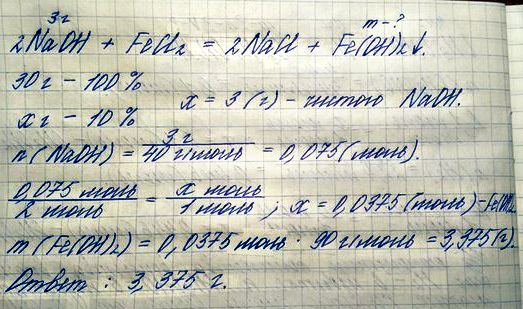 3г m - ?
2NaOH + FeCl₂ = 2NaCl + Fe(OH)₂↓.
30г - 100%
x = 3(г) - чистого NaOH.
xг - 10%
n(NaOH) = 3г / 40 г/моль = 0,075(моль).
0,075 моль / 2 моль = x моль / 1 моль ; x = 0,0375(моль) - Fe(OH)₂
m(Fe(OH)₂) = 0,0375 моль · 90 г/моль = 3,375(г).
Ответ : 3,375 г.